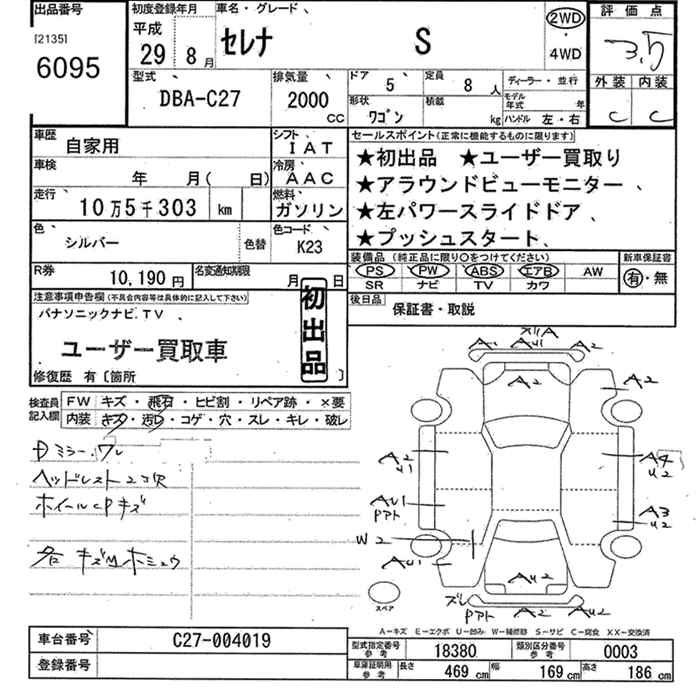 出品番号 初度登録年月 車名・グレード、 評価点
[2135] 平成 セレナ S 2WD 3.5
6095 29年 8月 ・ 4WD
型式、 排気量、 ドア、 5 定員 8人 ディーラー・並行 外装 内装
DBA-C27 2000cc 形状 ワゴン 積載 kg モデル年式 年 C C
ハンドル 左・右
車歴 自家用 シフト、 IAT セールスポイント(正常に機能するものに限ります)
車検 年 月( 日) 冷房、 AAC ★初出品 ★ユーザー買取り
走行、 10万5千303 km 燃料、 ガソリン ★アラウンドビューモニター、
★左パワースライドドア、
色、 シルバー 色替 色コード、 K23 ★プッシュスタート、
装備品(純正品に限り○をつけてください) 新車保証書
R券 10,190円 名変通知期限 月 日 PS PW ABS エアB AW 有・無
SR ナビ TV カワ
注意事項申告欄(不具合内容等は具体的に記入して下さい) 初出品 後日品 保証書・取説
パナソニックナビ、TV、
ユーザー買取車
修復歴 有〔箇所 〕
検査員記入欄 FW キズ・飛石・ヒビ割・リペア跡・×要
内装 キズ・汚レ・コゲ・穴・スレ・キレ・破レ
Dミラーワレ
ヘッドレスト2コ欠
ホイールCPキズ
A1 AU1 A2
A2
A2 U1
A4 U2
AU1 Pアト
A3 U2
W2
AU1
AU2
スペア
ズレ
Pアト A2 AU2
A-キズ E-エクボ U-凹み W-補修跡 S-サビ C-腐食 XX-交換済
車台番号 C27-004019 型式指定番号 参考 18380 類別区分番号 参考 0003
登録番号 車庫証明用 参考 長さ 469cm 幅 169cm 高さ 186cm